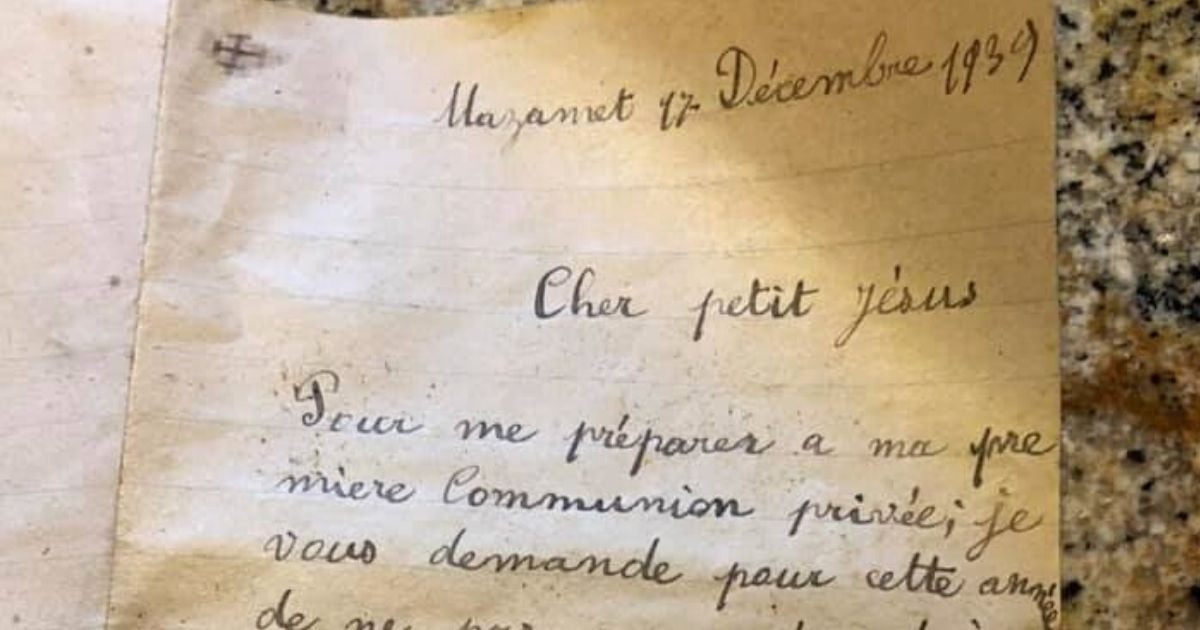 Mazamet 17 Décembre 1939
Cher petit Jésus
Pour me préparer a ma pre
miere Communion privée; je
vous demande pour cette année
de ne pas